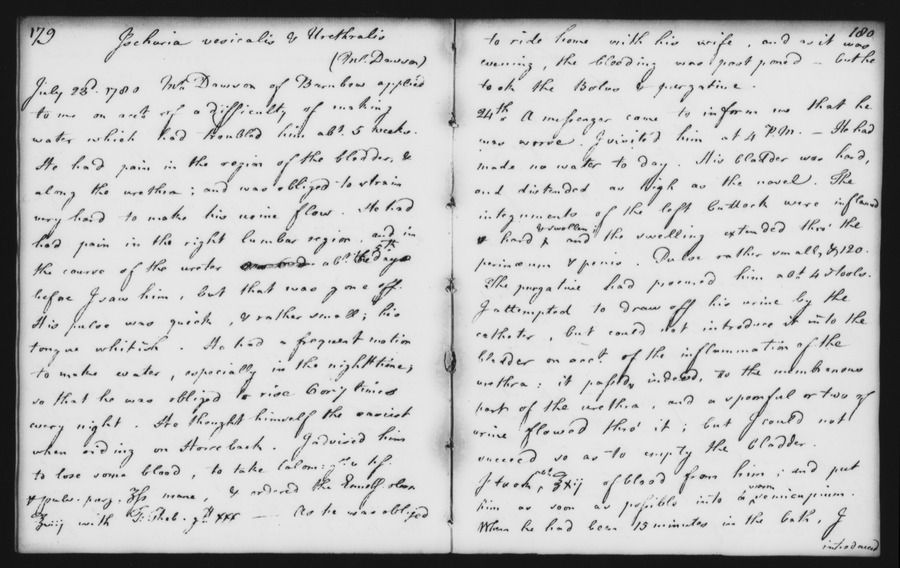 179
Ischuria vesicalis & Urethralis
(Mr. Dawson)
July 23d. 1780 Mr. Dawson of Barnbow applied
to me on acct. of a difficulty of making
water which had troubled him abt. 5 weeks.
He had pain in the region of the bladder, &
along the urethra; and was obliged to strain
very hard to make his urine flow. He had
had pain in the right lumbar region, and in
the course of the ureter abt. the 5th day
before I saw him, but that was gone off.
His pulse was quick, & rather small; his
tongue whitish. He had a frequent motion
to make water, especially in the night time;
so that he was obliged to rise 6 or 7 times
every night. He thought himself the easiest
when riding on Horseback. I advised him
to lose some blood, to take Calom:
& pulv. purg. ʒss mane, & ordered the Emuls. oleos.
℥viij with T. Theb. gtt. xxx — As he was obliged
180
to ride home with his wife, and as it was
evening, the bleeding was postponed — but he
took the Bolus & purgative.
24th. A messenger came to inform me that he
was worse. I visited him at 4 P.M. — He had
made no water to day. His bladder was hard,
and distended as high as the navel. The
integuments of the left buttock were inflamed
& hard & swollen and the swelling extended thro' the
perinæum & penis. Pulse rather small, & 120.
The purgative had procured him abt. 4 stools.
I attempted to draw off his urine by the
catheter, but could not introduce it into the
bladder on acct. of the inflammation of the
urethra: it passed, indeed, to the membranous
part of the urethra, and a spoonful or two of
urine flowed thro' it; but I could not
succeed so as to empty the bladder.
I took ℥xij of blood from him; and put
him as soon as possible into a warm semicupium.
When he had been 15 minutes in the bath, I
introduced